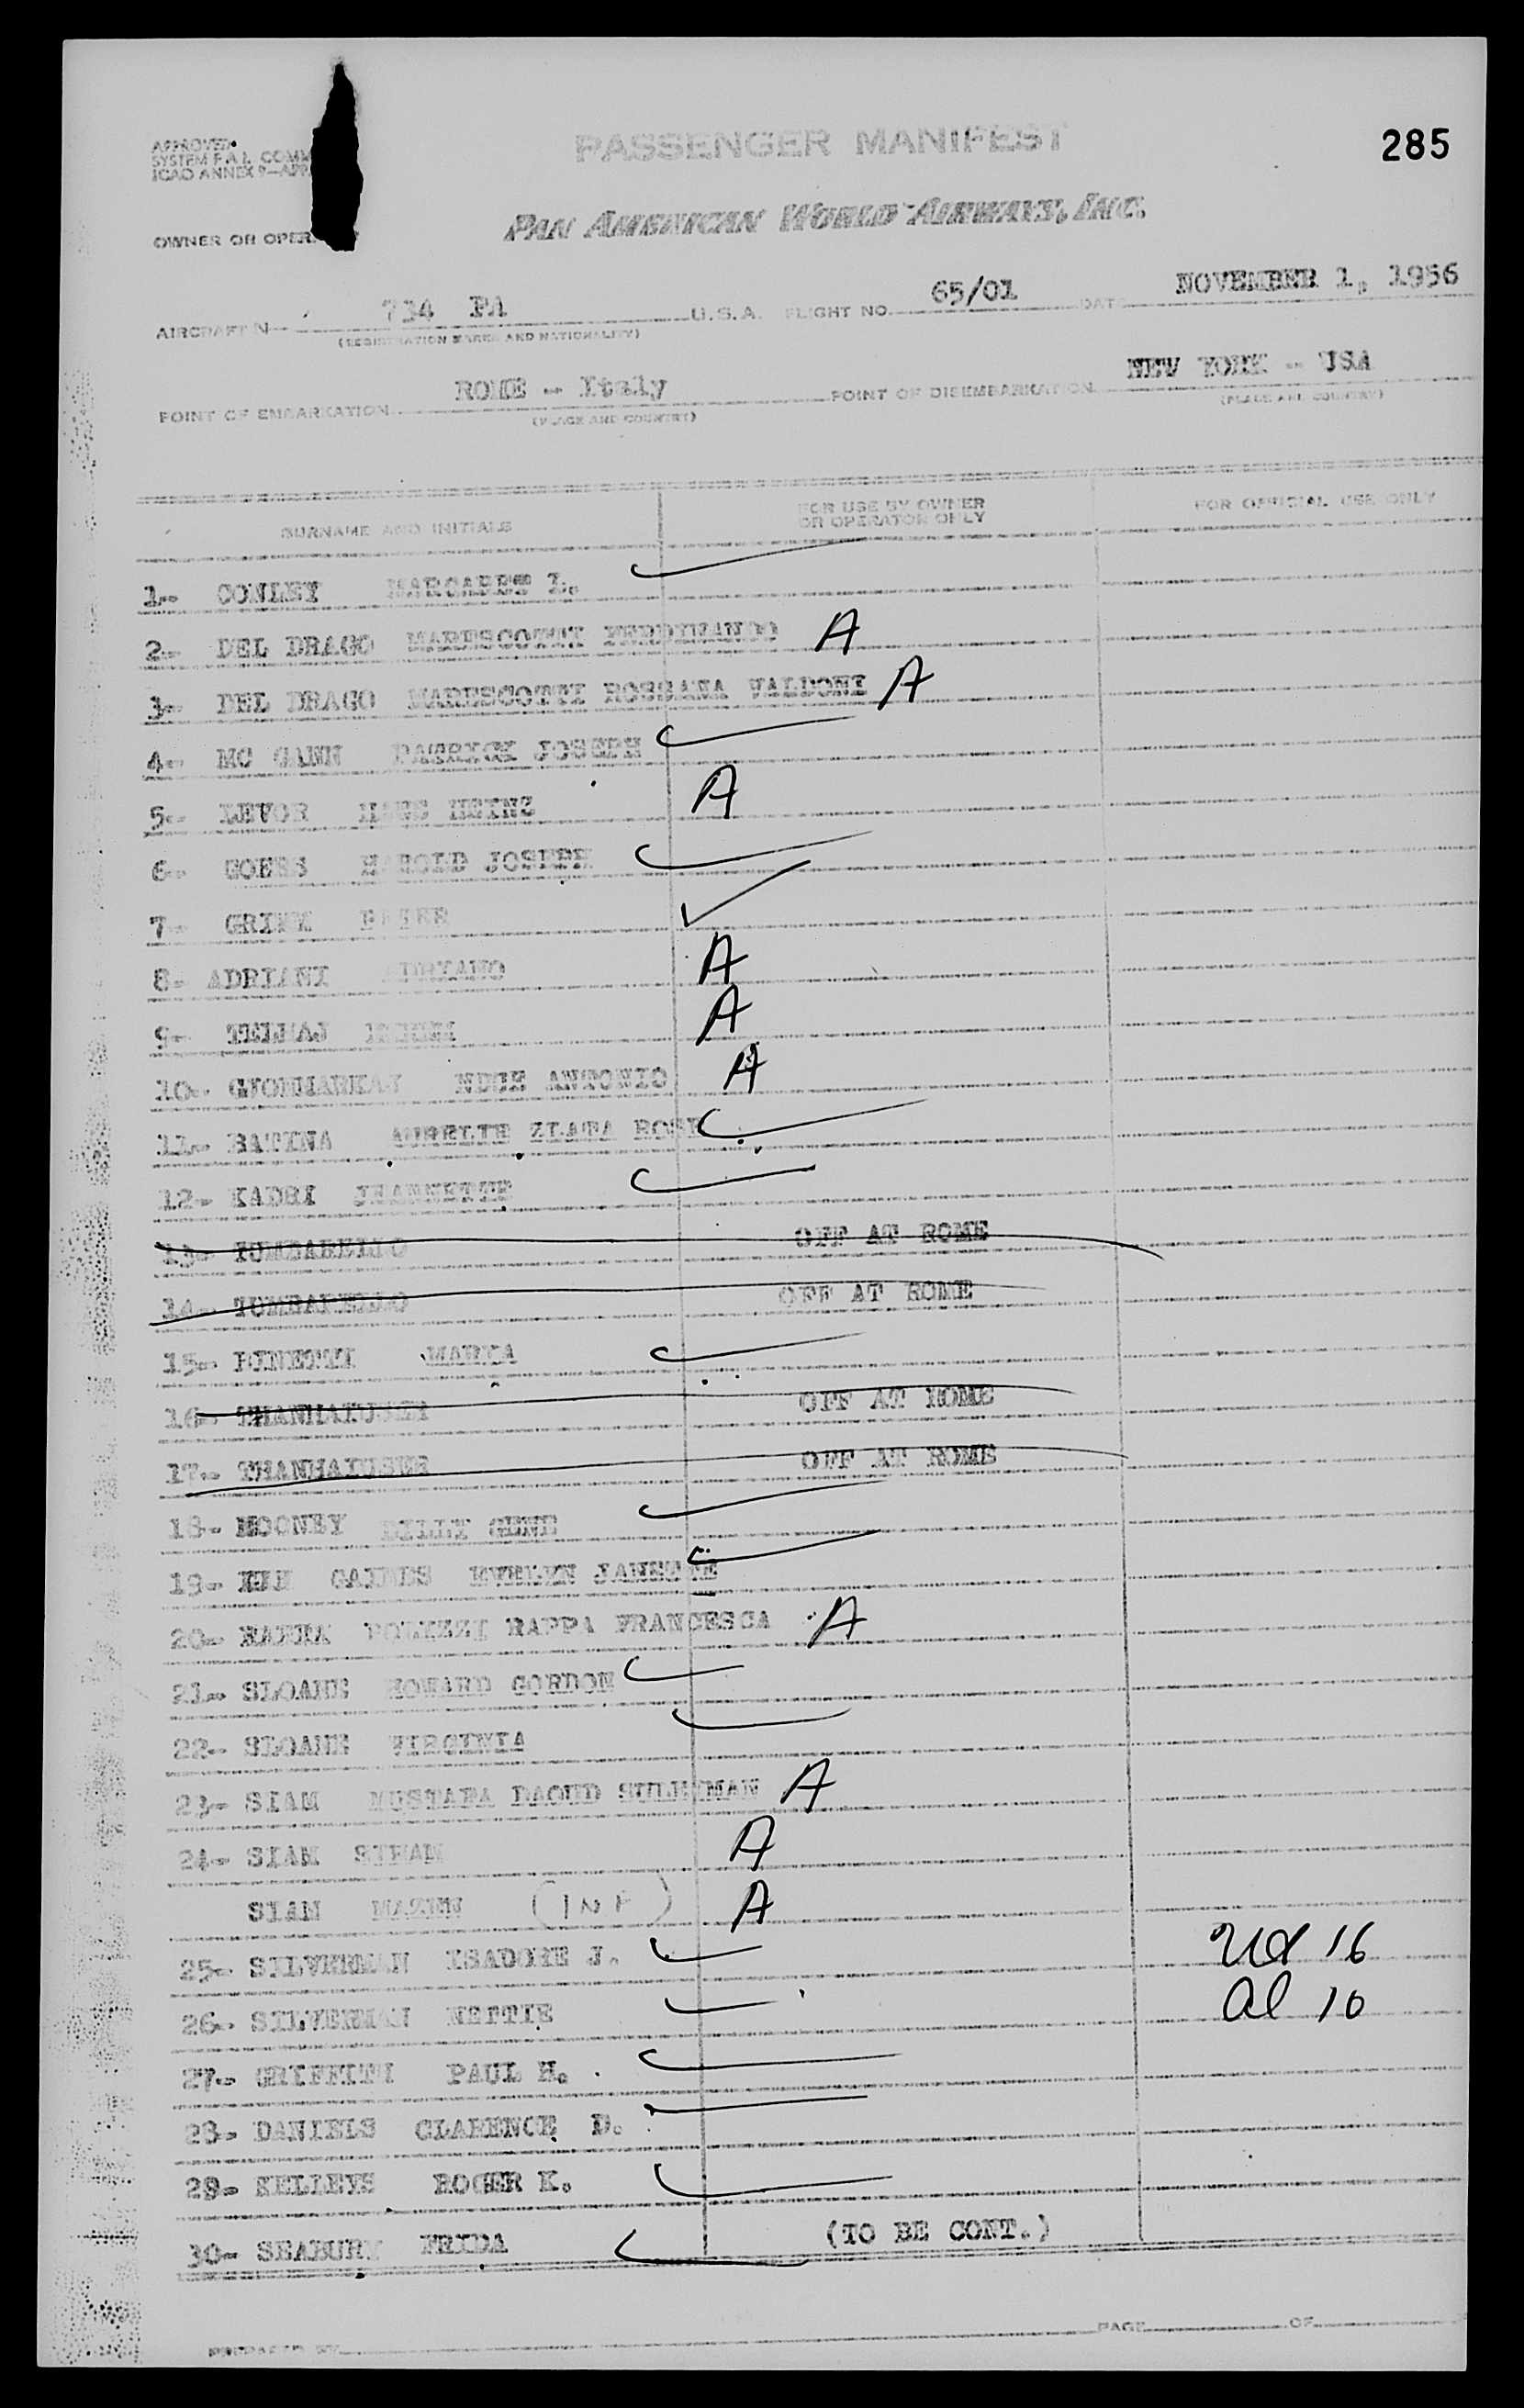 285
PASSENGER MANIFEST
APPROVED
SYSTEM F.A.L. COMM
ICAO ANNEX 9—APP
PAN AMERICAN WORLD AIRWAYS, INC.
OWNER OR OPER
AIRCRAFT N— 734 PA U.S.A. FLIGHT NO. 65/01 DATE NOVEMBER 1, 1956
(REGISTRATION MARKS AND NATIONALITY)
POINT OF EMBARKATION ROME -- Italy POINT OF DISEMBARKATION NEW YORK -- USA
(PLACE AND COUNTRY) (PLACE AND COUNTRY)
SURNAME AND INITIALS FOR USE BY OWNER OR OPERATOR ONLY FOR OFFICIAL USE ONLY
1-- CONLEY MARGARET L. ✓
2-- DEL DRAGO MARESCOTTI FERDINANDO A
3-- DEL DRAGO MARESCOTTI ROSSANA VALDONI A
4-- MC GANN PATRICK JOSEPH ✓
5-- LEVOR HANS HEINZ A
6-- GOESS HAROLD JOSEPH ✓
7-- GRIMM PETER ✓
8-- ADRIANI A
9-- A
10-- NDUE ANTONIO A
11-- BATINA AURELIE ZLATA ROSE ✓
12-- KADRI JEANNETTE ✓
13-- TUMBARELLO OFF AT ROME
14-- TUMBARELLO OFF AT ROME
15-- MARIA ✓
16-- THANHAUSER OFF AT ROME
17-- THANHAUSER OFF AT ROME
18-- MOONEY BILLY GENE ✓
19-- GAINES EVELYN JANETTE ✓
20-- POLIZZI RAPPA FRANCESCA A
21-- SLOANE HOWARD GORDON ✓
22-- SLOANE VIRGINIA ✓
23-- SIAM MUSTAFA DAOUD SULEYMAN A
24-- SIAM SIHAM A
SIAM MAZEN (INF) A
25-- SILVERMAN ISADORE J. ✓ 16
26-- SILVERMAN NETTIE ✓ al 10
27-- GRIFFITH PAUL H. ✓
28-- DANIELS CLARENCE D. ✓
29-- KELLEYS ROGER K. ✓
30-- SEABURY FRIDA ✓ (TO BE CONT.)
PREPARED BY PAGE OF